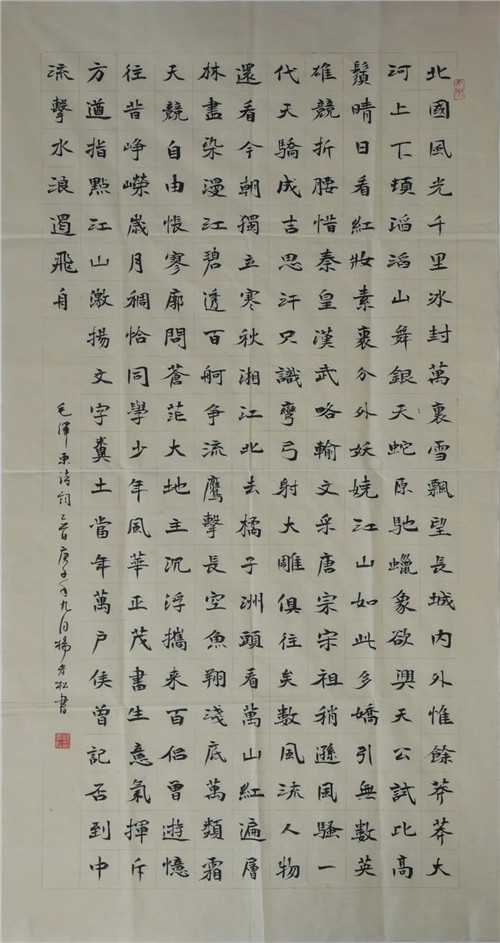 北國風光千里冰封萬裏雪飄望長城内外惟餘莽莽大
河上下頓滔滔山舞銀天蛇原馳蠟象欲與天公試比高
鬚晴日看紅妝素裹分外妖嬈江山如此多嬌引無數英
雄競折腰惜秦皇漢武略輸文采唐宗宋祖稍遜風騷一
代天驕成吉思汗只識彎弓射大雕俱往矣數風流人物
還看今朝獨立寒秋湘江北去橘子洲頭看萬山紅遍層
林盡染漫江碧透百舸争流鷹擊長空魚翔淺底萬類霜
天競自由悵寥廓問蒼茫大地主沉浮攜来百侣曾遊憶
往昔崢嶸歲月稠恰同學少年風華正茂書生意氣揮斥
方遒指點江山激揚文字糞土當年萬户侯曾記否到中
流擊水浪遏飛舟
毛澤東詩詞二首庚子年九月楊松書